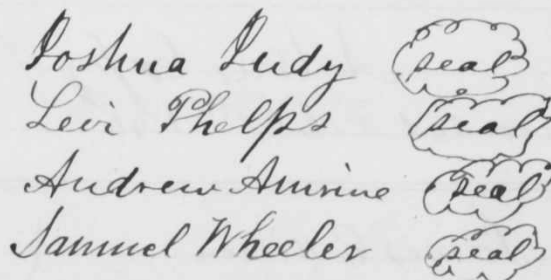 Joshua Judy seal
Levi Phelps seal
Andrew Amrine seal
Samuel Wheeler seal